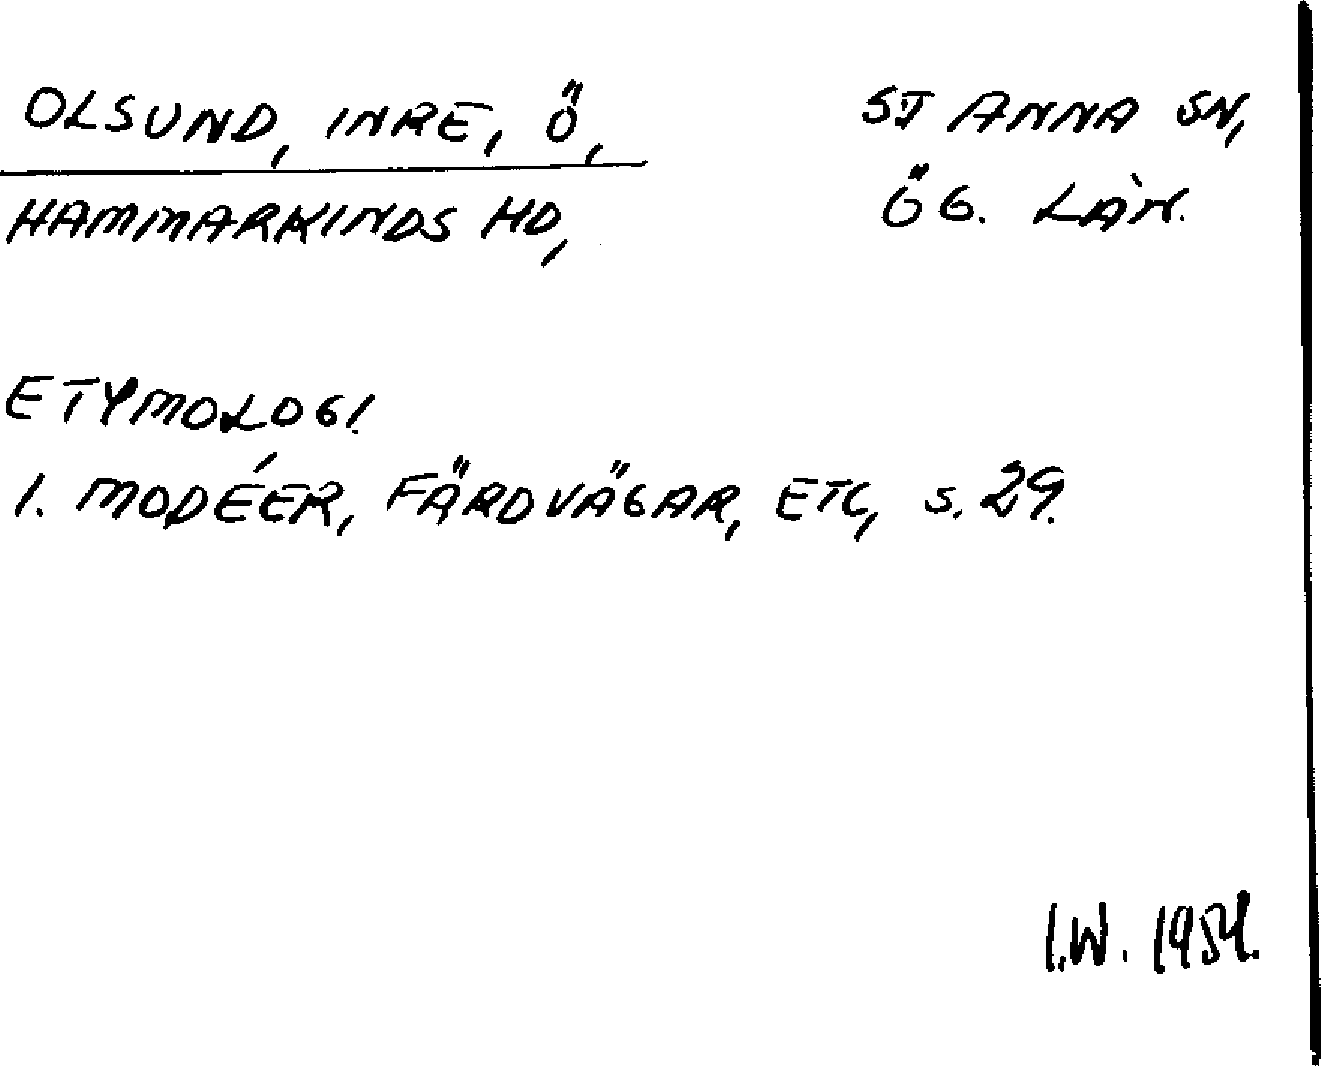 OLSUND, INRE, Ö, ST ANNA SN,
HAMMARKINDS HD, ÖG. LÄN.
ETYMOLOGI.
1. MODÉER, FÄRDVÄGAR, ETC, S. 29.
I.W. 1954.